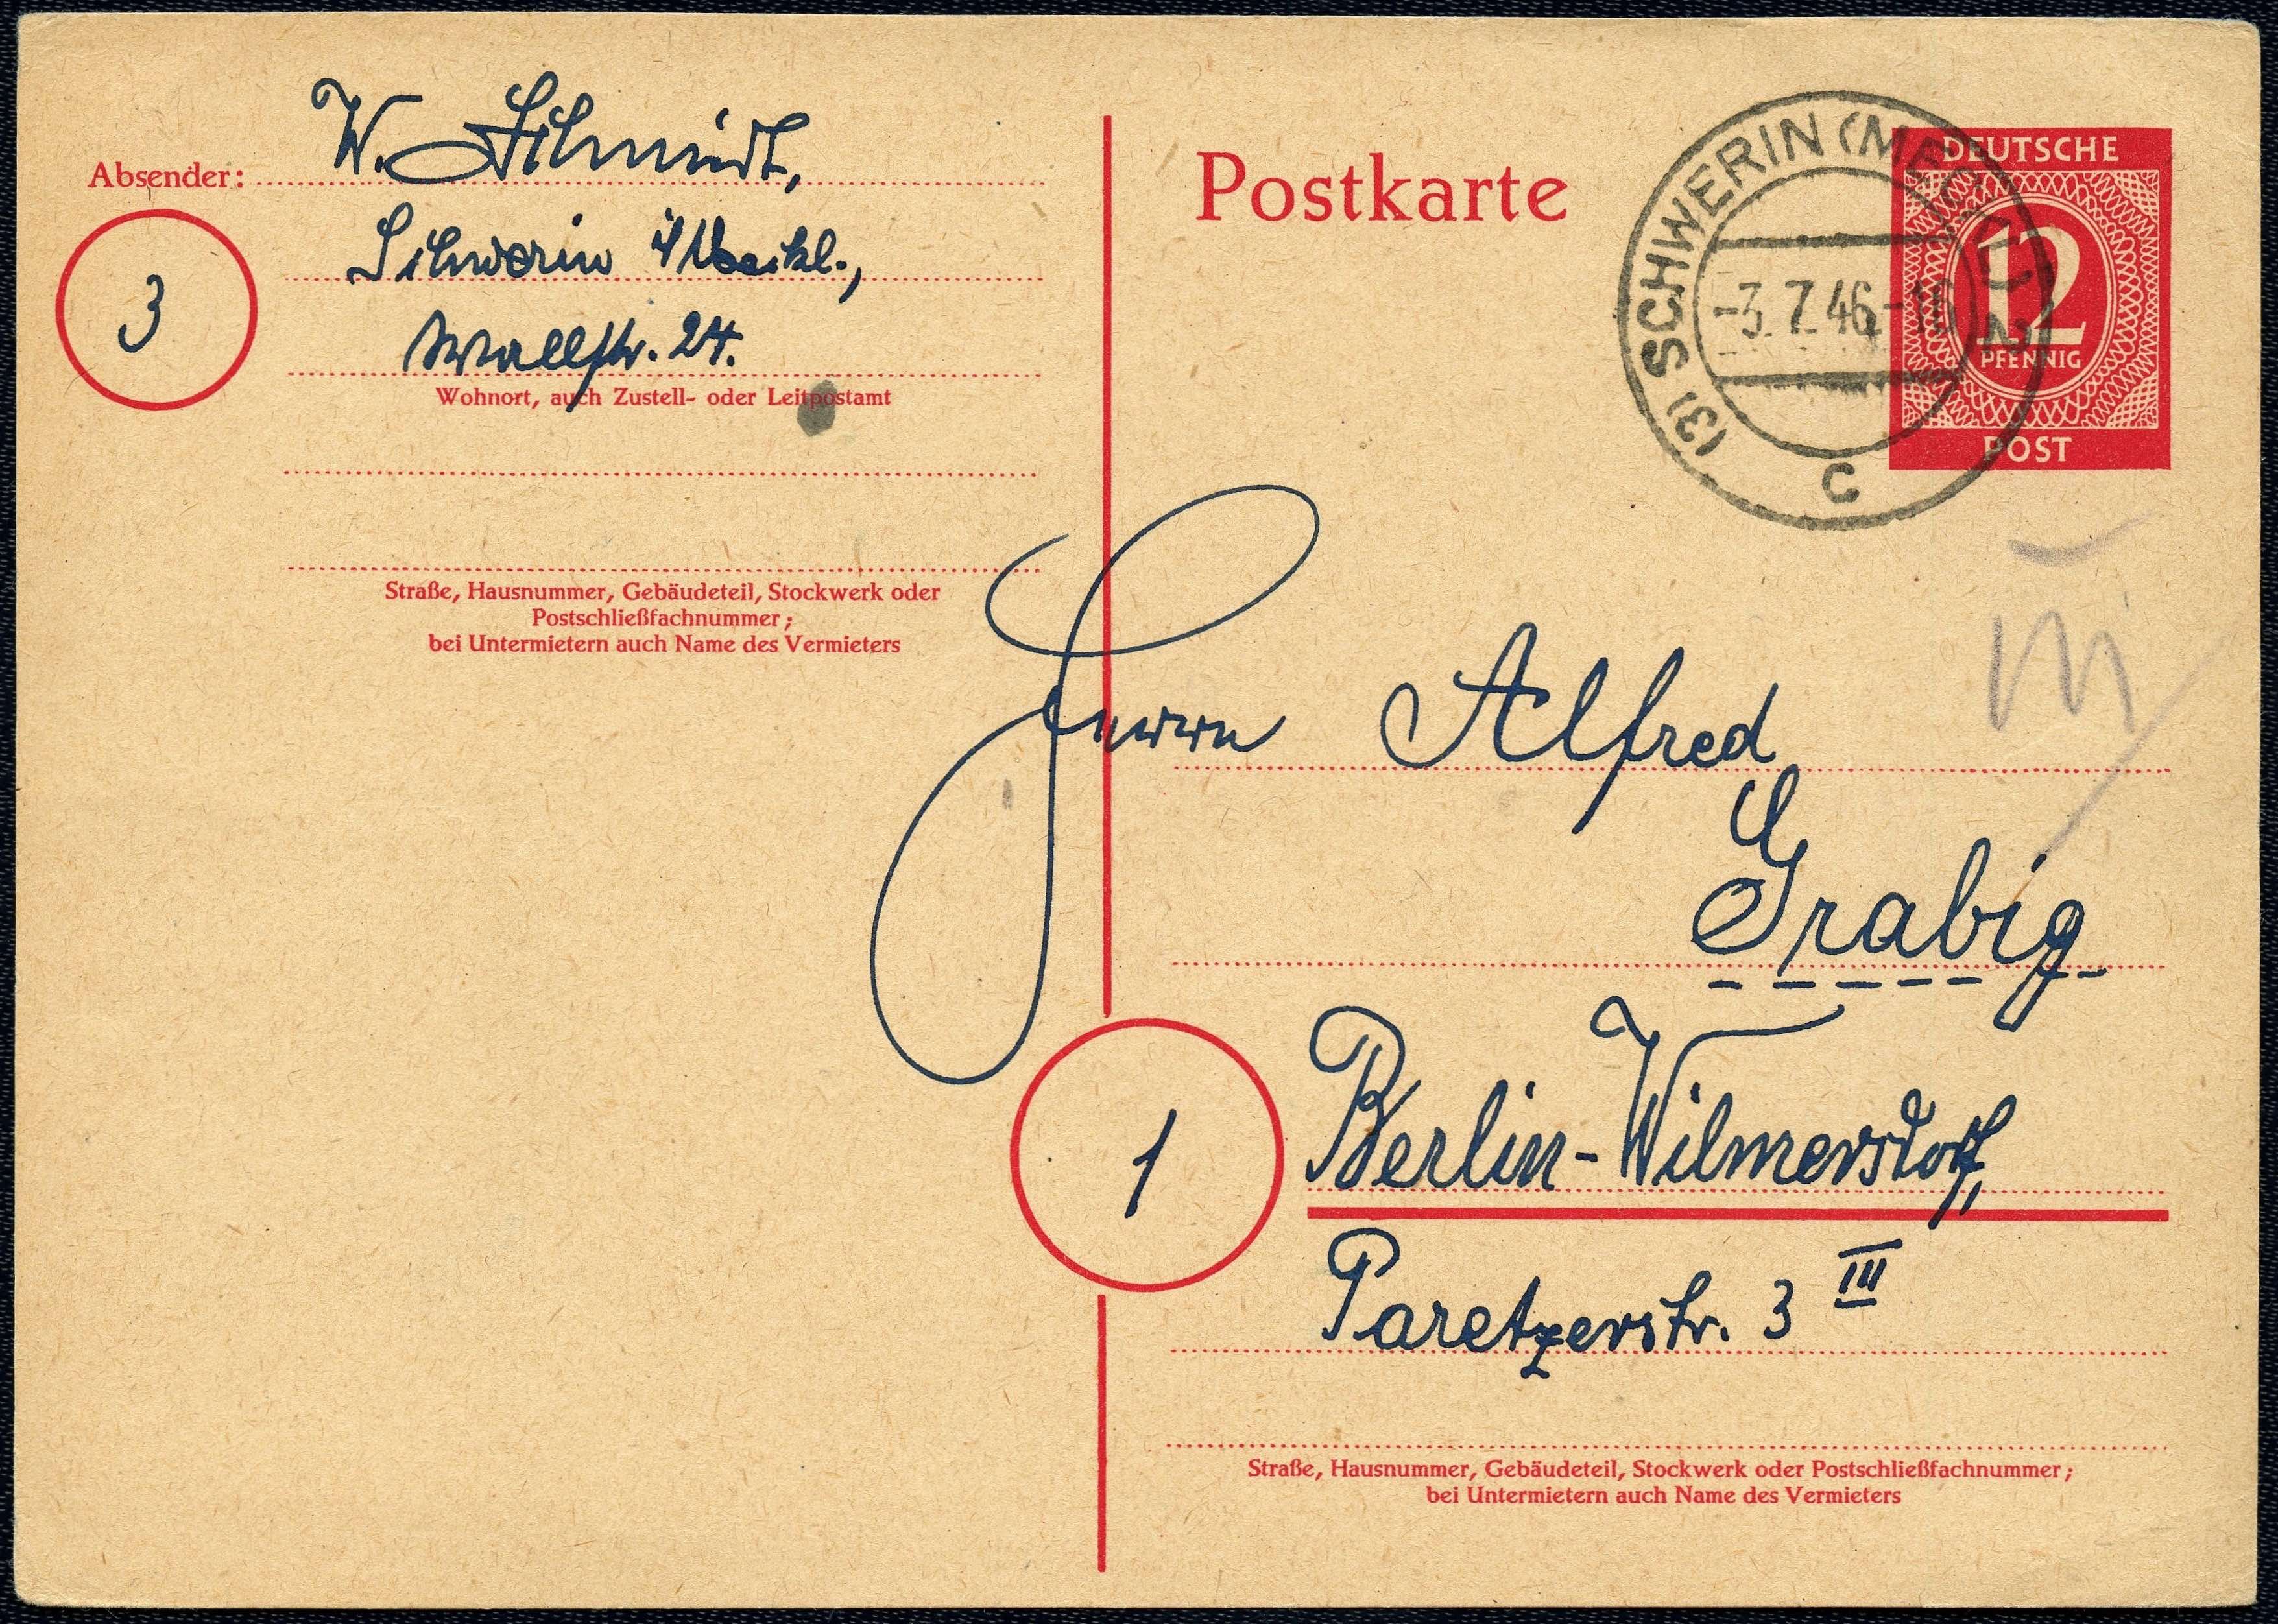 Absender:
W. Schmidt,
Schwerin i/Meckl.,
Wallstr. 24.
3
Wohnort, auch Zustell- oder Leitpostamt
Straße, Hausnummer, Gebäudeteil, Stockwerk oder
Postschließfachnummer;
bei Untermietern auch Name des Vermieters
Postkarte
(3) SCHWERIN (MECKL) 2
-3.7.46.-
c
DEUTSCHE
12
PFENNIG
POST
Herrn Alfred
Grabig
1
Berlin-Wilmersdorf,
Paretzerstr. 3 III
Straße, Hausnummer, Gebäudeteil, Stockwerk oder Postschließfachnummer;
bei Untermietern auch Name des Vermieters